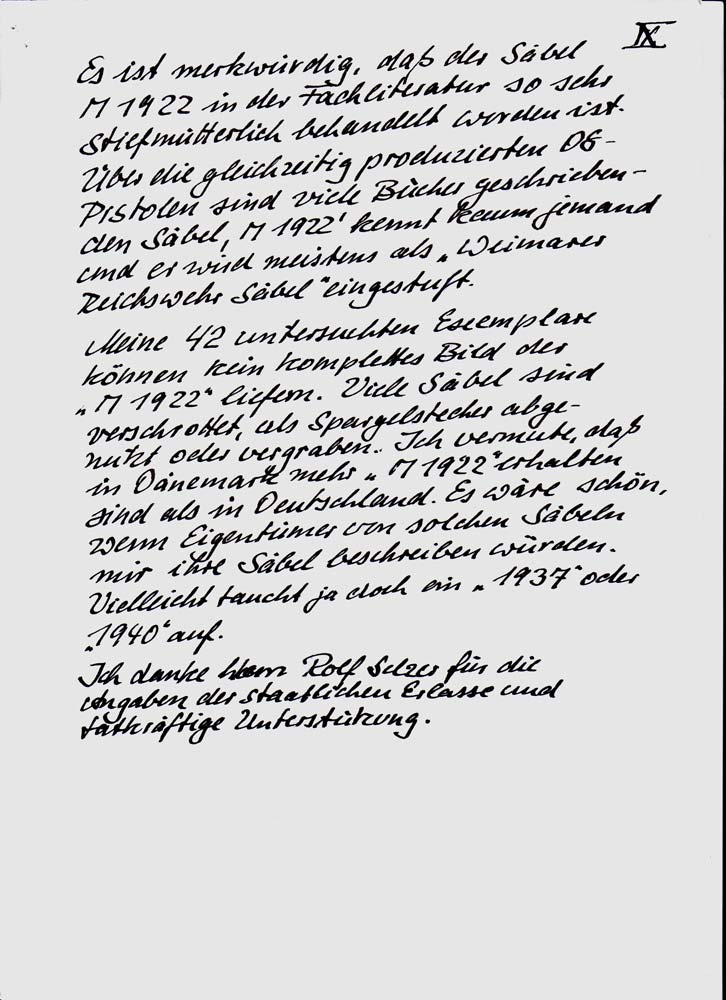 IX
Es ist merkwürdig, daß der Säbel
M 1922 in der Fachliteratur so sehr
stiefmütterlich behandelt worden ist.
Über die gleichzeitig produzierten 08-
Pistolen sind viele Bücher geschrieben-
den Säbel „M 1922" kennt kaum jemand
und er wird meistens als „Weimarer
Reichswehr Säbel" eingestuft.
Meine 42 untersuchten Exemplare
können kein komplettes Bild der
„M 1922" liefern. Viele Säbel sind
verschrottet, als Spargelstecher abge-
nutzt oder vergraben. Ich vermute, daß
in Dänemark mehr „M 1922" erhalten
sind als in Deutschland. Es wäre schön,
wenn Eigentümer von solchen Säbeln
mir ihre Säbel beschreiben würden.
Vielleicht taucht ja doch ein „1937" oder
„1940" auf.
Ich danke Herrn Rolf Selzer für die
Angaben der staatlichen Erlasse und
tatkräftige Unterstützung.